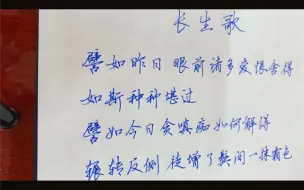 长生歌
譬如昨日 眼前诸多爱恨舍得
如斯种种堪过
譬如今日贪嗔痴如何解得
辗转反侧 徒增了鬓间一抹霜色